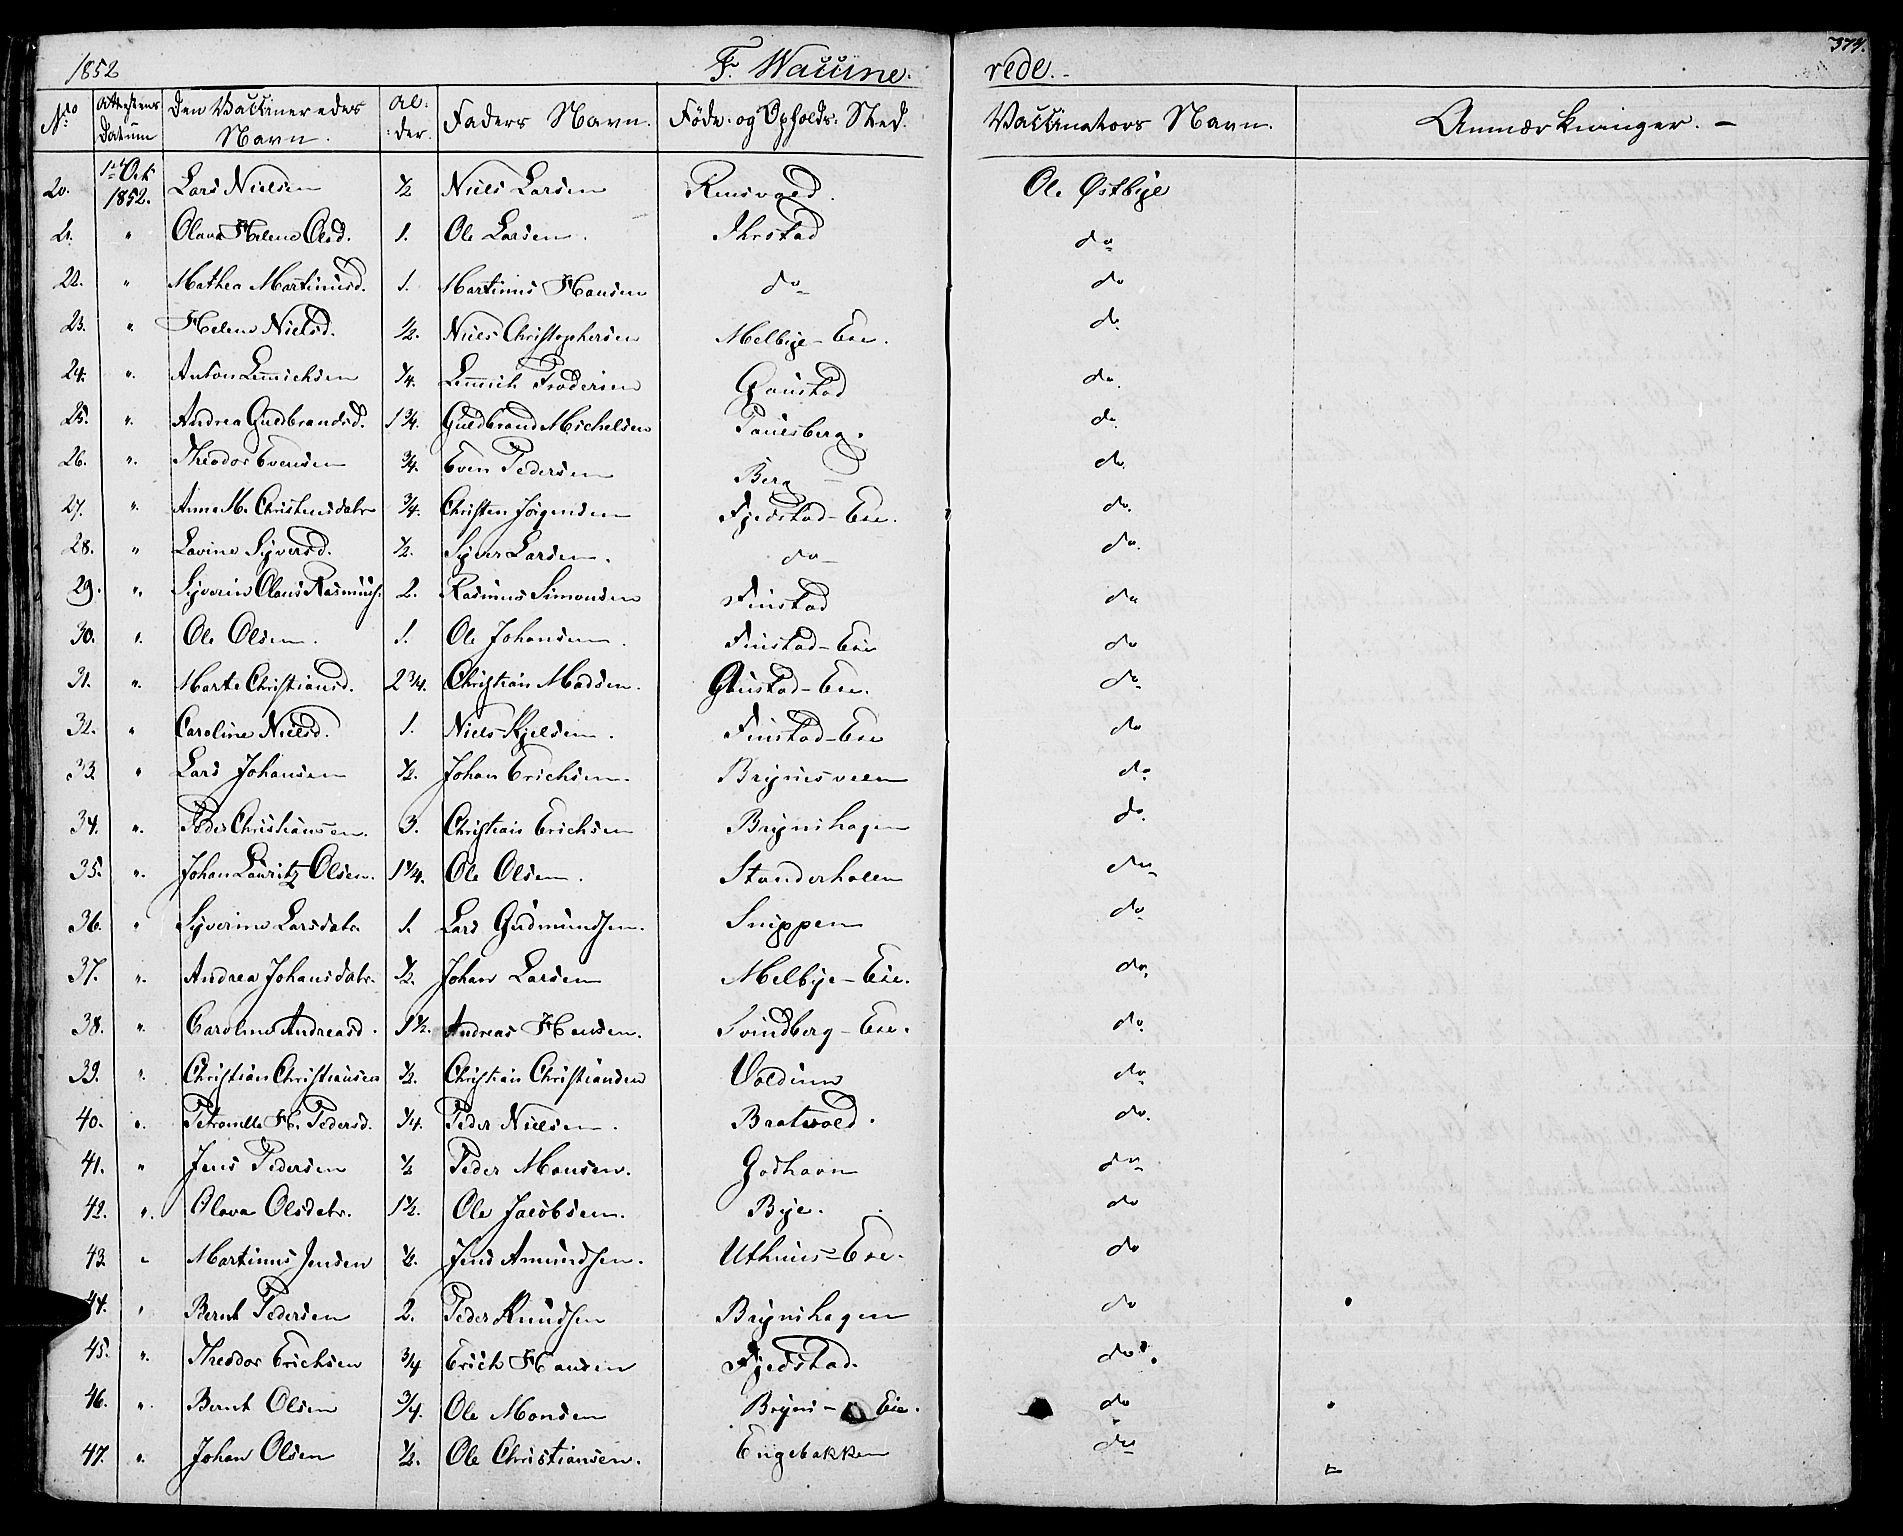 1852 F. Waccine. rede. 374.
No Attestens Datum Den Vaccineredes Navn. Al:der. Faders Navn. Føde- og Opholds-Sted. Vaccinators Navn. Anmærkninger.
20. 1ste Oct 1852. Lars Nielsen ½ Niels Larsen Rensvold. Ol. Østbye
21. " Olava Helene Olsd. 1. Ole Larsen. Ihrstad do
22. " Mathea Martinusd. 1. Martinus Hansen do do
23. " Helene Nielsd. ½. Niels Christophersen Melbye-Eie. do
24. " Anton Lemichsen ¼. Lemich Frodesen Gaustad do.
25. " Andrea Guldbrandsd. 1¾. Guldbrand Michelsen Pauesberg. do.
26. " Theodor Evensen ¾. Even Pedersen Berg do
27. " Anne M. Christensdatr ¾. Christen Jørgensen Fjedstad-Eie. do.
28. " Lavine Syversd. ½. Syver Larsen. do do.
29. " Syverin Olaus Rasmuss. 2. Rasmus Simonsen Finstad do
30. " Ole Olsen. 1. Ole Johansen. Finstad-Eie do
31. " Marte Christiansd. 2¾. Christian Madsen. Gaustad-Eie. do
32. " Caroline Nielsd. 1. Niels Kjelsen. Finstad-Eie do
33. " Lars Johansen ½. Johan Erichsen. Brynisveen do
34. " Peder Christiansen. 3. Christian Erichsen Brynshagen do.
35. " Johan Lauritz Olsen. 1¼. Ole Olsen. Standerholen do
36. " Syverine Larsdatr. 1. Lars Gudmundsen. Snippen do
37. " Andrea Johansdatr. ½. Johan Larsen Melbye-Eie. do.
38. " Caroline Andreasd. 1½. Andreas Hansen. Svindberg-Eie. do
39. " Christian Christiansen ½. Christian Christiansen Voldinn do
40. " Petronelle H. Pedersd. ¼. Peder Nielsen. Bratvold. do.
41. " Jens Pedersen ½ Peder Monsen. Godhavn do
42. " Olava Olsdatr. 1½. Ole Jacobsen. Bye. do
43. " Martinus Jensen ½. Jens Amundsen. Uthuus-Eie. do
44. " Bernt Pedersen 2. Peder Knudsen Brynshagen do
45. " Theodor Erichsen ¾ Erich Hansen Fjedstad. do.
46. " Bernt Olsen ¾. Ole Monsen Bryni-Eie. do
47. " Johan Olsen ½. Ole Christiansen. Engebakken do